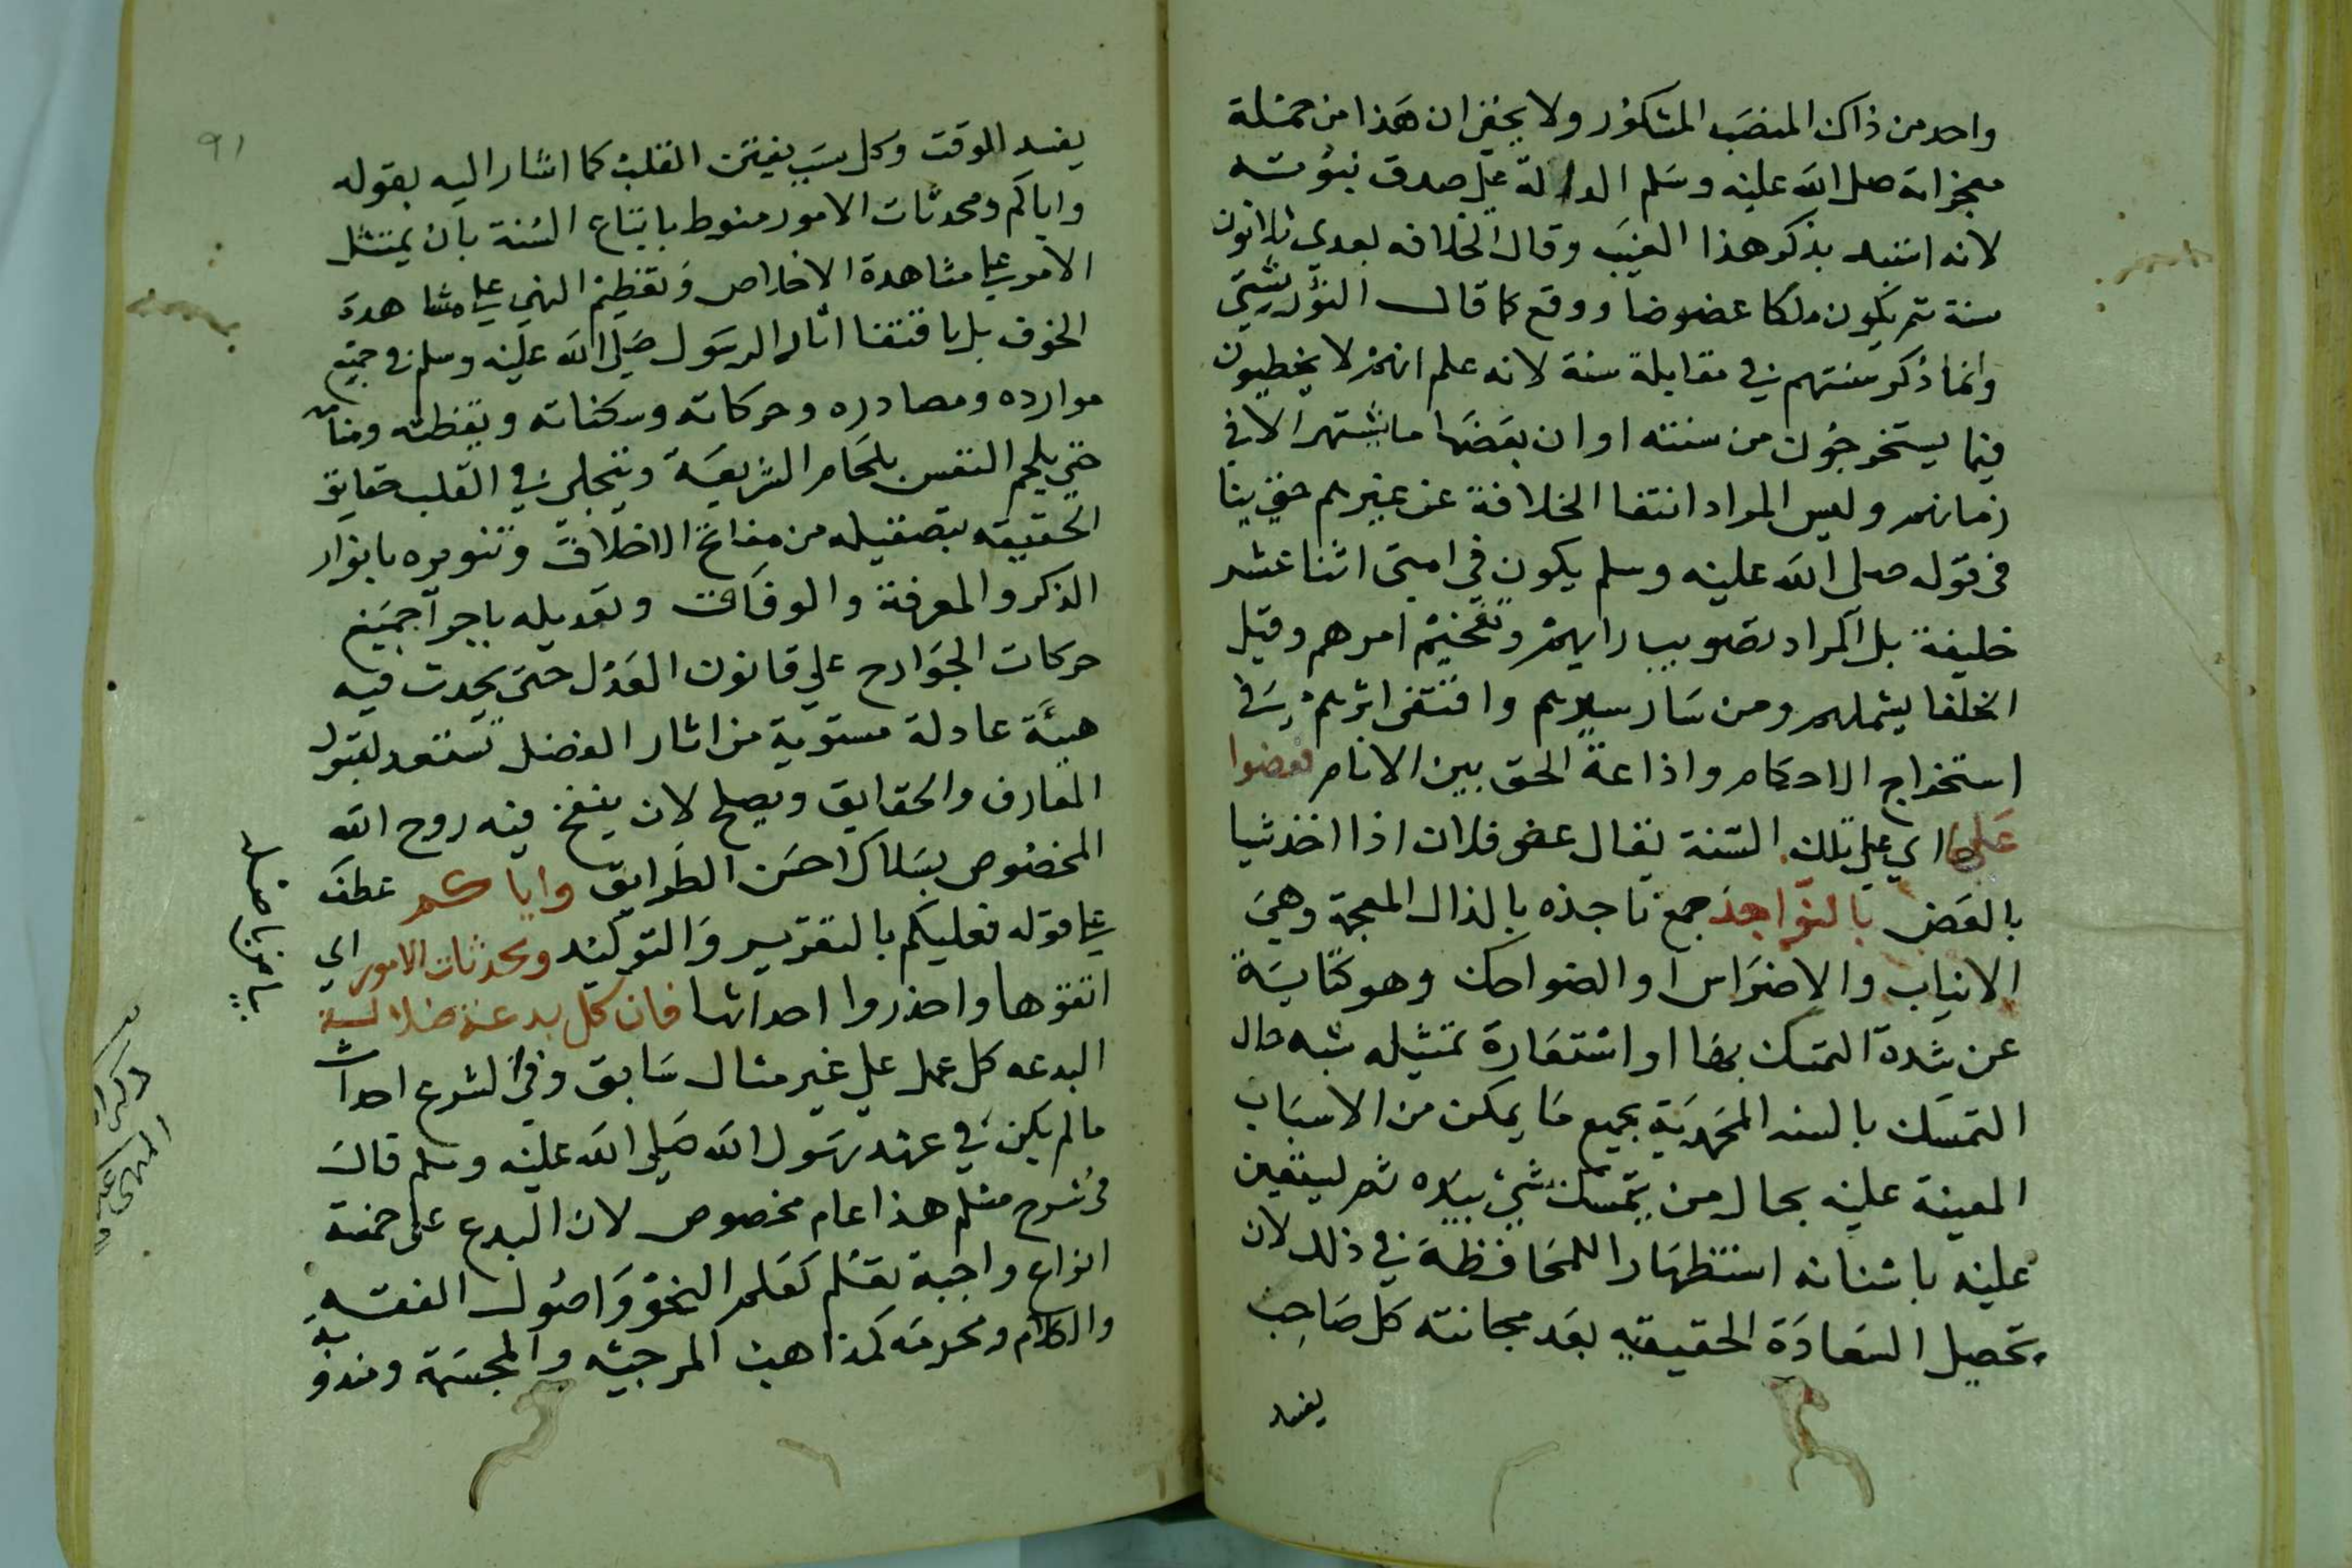 واحد من ذاك المنصب المشكور ولا يخفي ان هذا من جملة
معجزاته صلى الله عليه وسلم الدالة علي صدق نبوته
لانه استبد بذكر هذا الغيب وقال الخلافه بعدي ثلاثون
سنة ثم يكون ملكا عضوضا ووقع كما قال التوربشتي
وانما ذكر سنتهم في مقابلة سنة لانه علم انهم لا يخطيون
فيما يستخرجون من سنته او ان بعضها ما يشتهر الا في
زمانهم وليس المراد انتفا الخلافة عن غيرهم حتى ينا
في قوله صلى الله عليه وسلم يكون في امتى اثنا عشر
خليفة بل المراد تصويب رايهم وتفخيم امرهم وقيل
الخلفا يشملهم ومن سار سيرهم واقتفى اثرهم في
استخراج الاحكام واذاعة الحق بين الانام فعضوا
عليها اي علي تلك السنة يقال عض فلان اذا اخذ شيا
بالعض بالنواجذ جمع ناجذه بالذال المعجمة وهي
الانياب والاضراس او الضواحك وهو كناية
عن شدة التمسك بها او استعارة تمثيله شبه حال
التمسك بالسنه المحمدية بجميع ما يمكن من الاسباب
المعينة عليه بحال من يتمسك بشيء بيده ثم ليستعين
عليه باسنانه استظهارا للمحافظة في ذلك لان
تحصيل السعادة الحقيقيه بعد مجانبته كل صاحب
يفسد
91
يفسد الوقت وكل سبب يفتن القلب كما اشار اليه بقوله
واياكم ومحدثات الامور منوط باتباع السنة بان يمتثل
الامر علي مشاهدة الاخلاص وتعظيم النهي علي مشاهدة
الخوف بل باقتفا اثار الرسول صلي الله عليه وسلم في جميع
موارده ومصادره وحركاته وسكناته ويقظته ومنامه
حتي يلجم النفس بلجام الشريعة ويتجلى في القلب حقايق
الحقيقه بتصقيله من مفاتح الاخلاق وتنويره بانوار
الذكر والمعرفة والوفاق وتعديله باجرآ جميع
حركات الجوارح علي قانون العدل حتى يحدث فيه
هيئة عادلة مستوية من اثار الفضل تستعد لقبول
المعارف والحقايق ويصلح لان ينفخ فيه روح الله
المخصوص بسلاك احسن الطرايق واياكم عطف
علي قوله فعليكم بالتقرير والتوكيد ومحدثات الامور اي
اتقوها واحذروا احداثها فان كل بدعة ضلالة
البدعه كل عمل علي غير مثال سابق وفي الشرع احداث
ما لم يكن في عهد رسول الله صلي الله عليه وسلم قال
في شرح مسلم هذا عام مخصوص لان البدع على خمسة
انواع واجبة تعلم كعلم النحو واصول الفقه
والكلام ومحرمه كمذاهب المرجيه والمجسمة ومندوبة